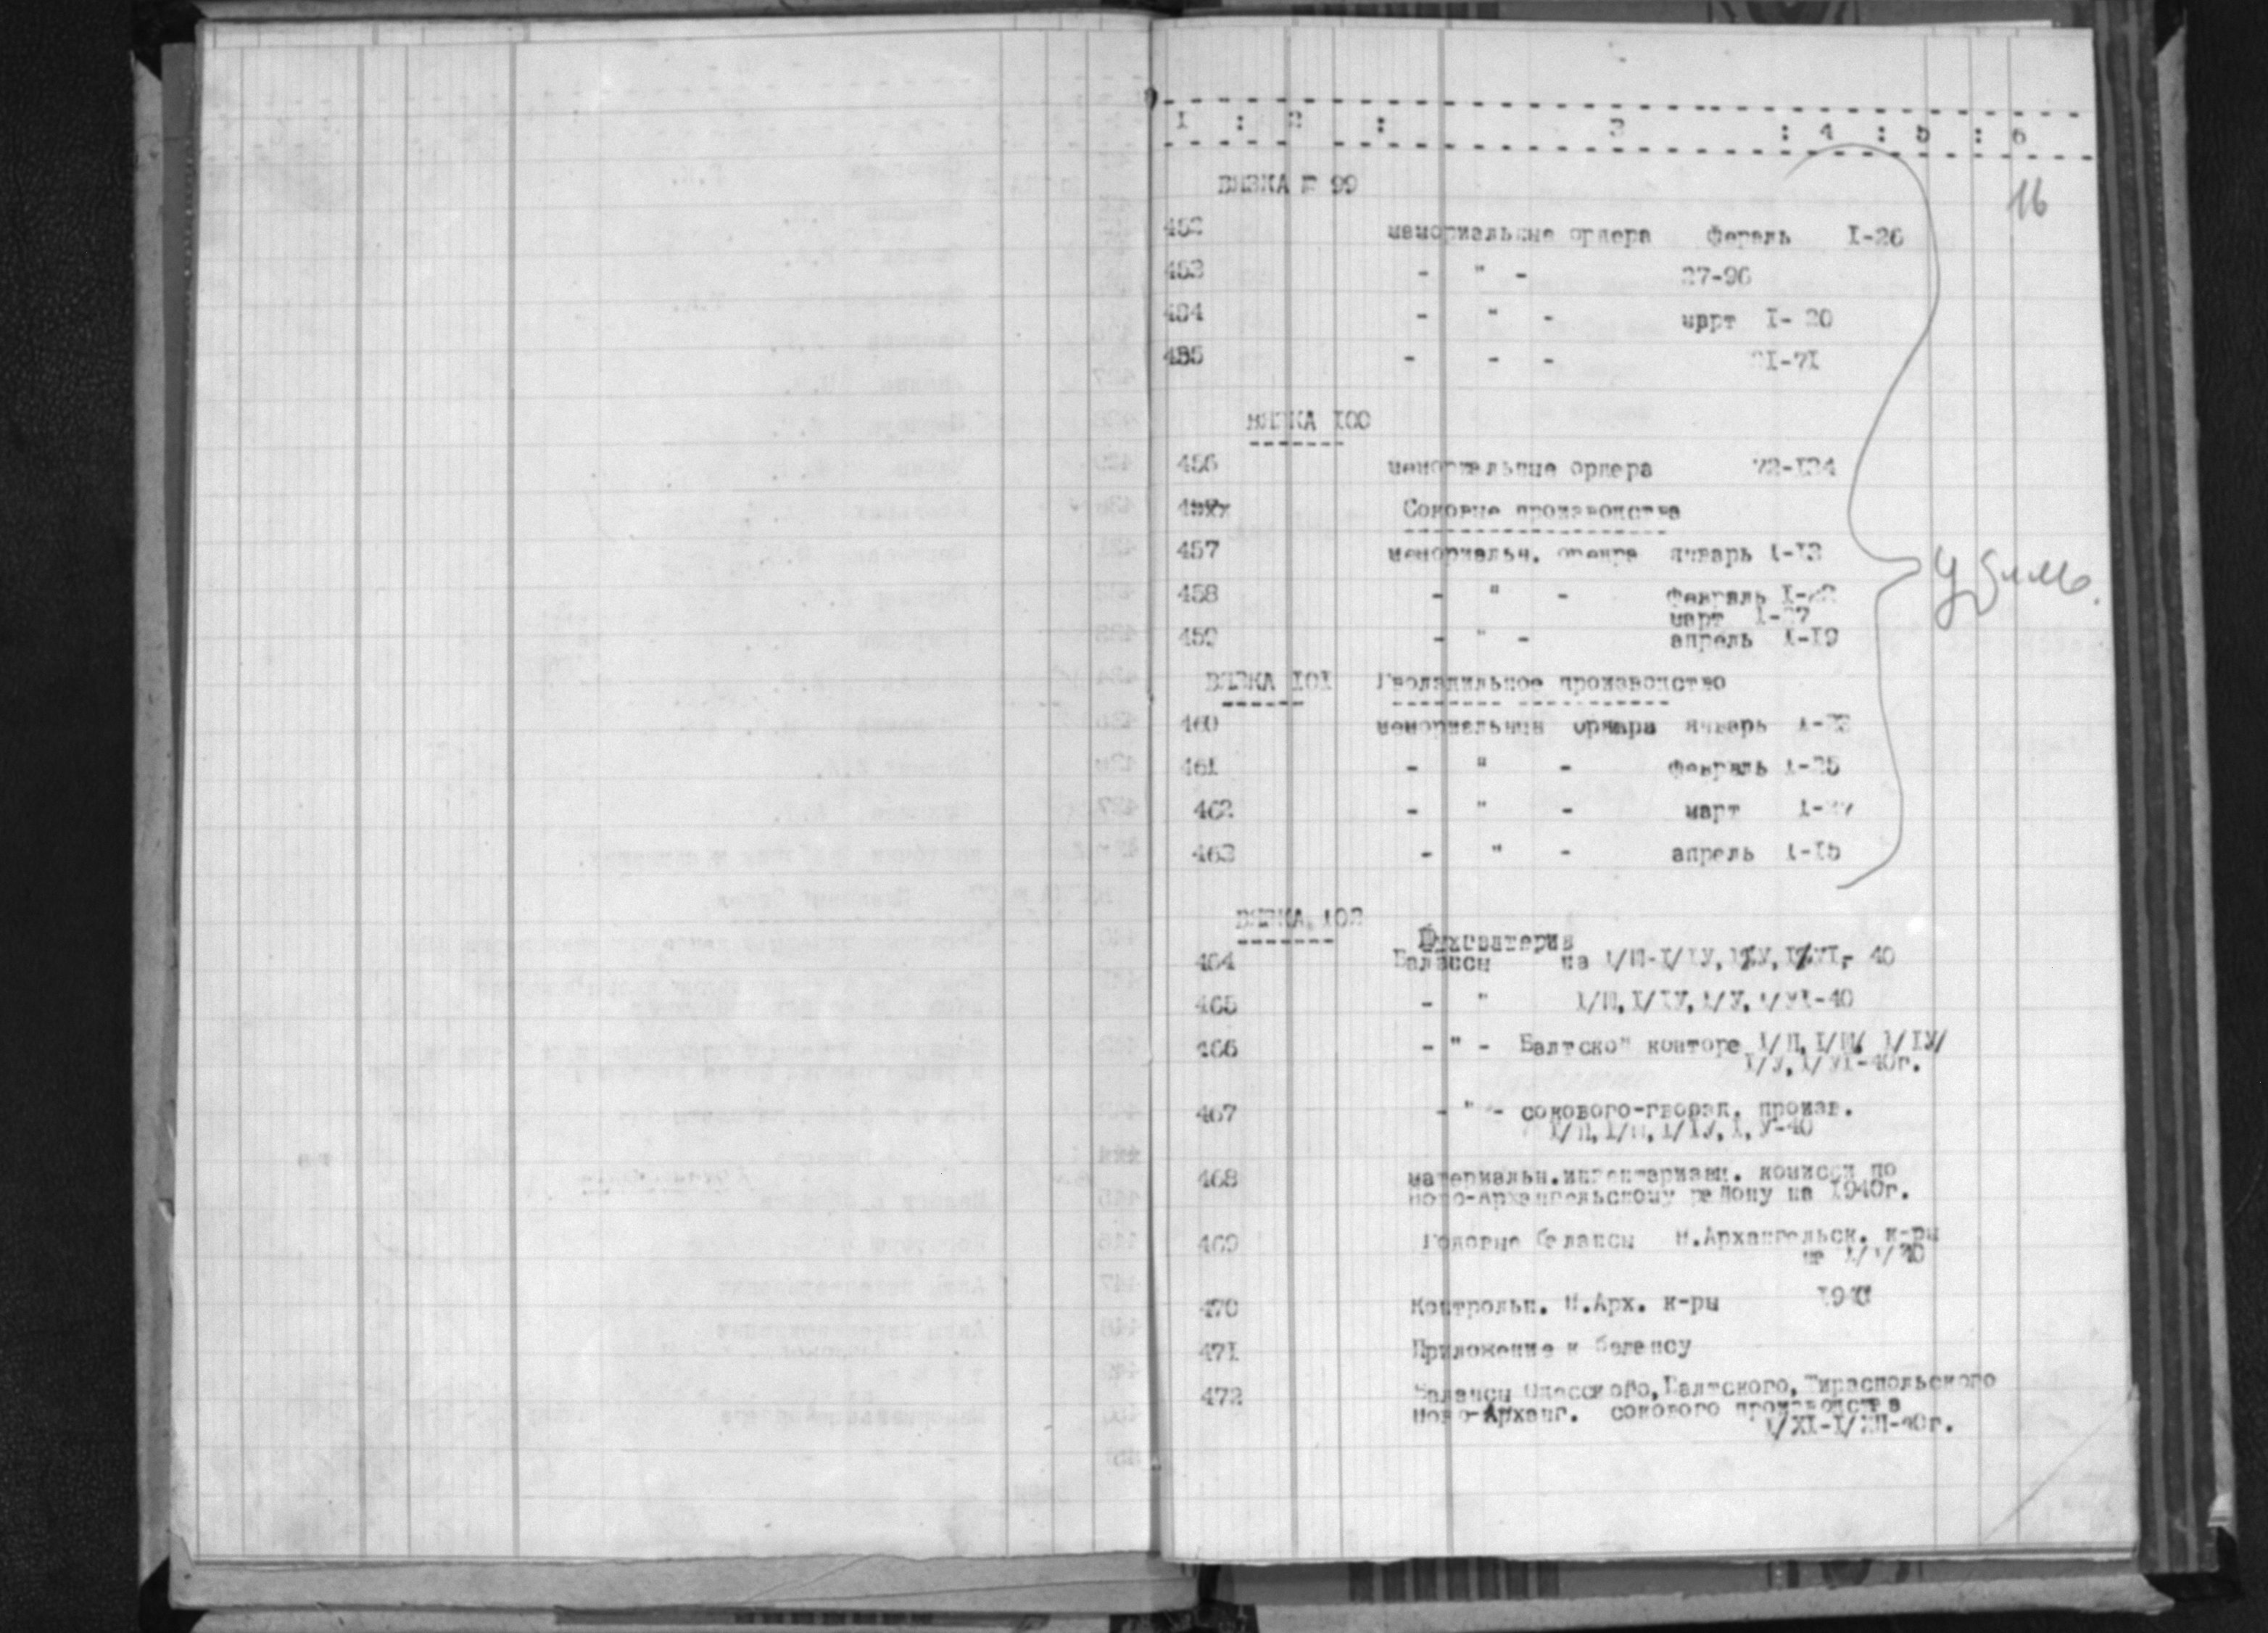 I : 2 : 3 : 4 : 5 : 6
16
ВЯЗКА № 99
452 мемориальные ордера фераль I-26
453 - " - 27-96
454 - " - март I- 20
455 - - - 21-71
ВЯЗКА 100
456 мемориальные ордера 72-134
Соковые производства
457 мемориальн. ордера январь I-13
458 - " - февраль I-22
март I-27
459 - " - апрель I-19
удмь.
ВЯЗКА 101 Гвоздильное производство
460 мемориальныя ордера январь I-23
461 - " - февраль I-25
462 - " - март I-27
463 - " - апрель I-15
ВЯЗКА 102
Бухгалтерия
464 Балансы на I/Ш-I/IУ, I/У, I/УI,- 40
465 - " I/Ш, I/IУ, I/У, I/УI-40
466 - " - Балтской конторе I/П, I/Ш, I/IУ/
I/У, I/УI-40г.
467 - " - сокового-гвозд. произв.
I/П, I/Ш, I/IУ, I, У-40
468 материальн.инвентаризац. комисси по
Ново-Архангельскому району на 1940г.
469 Годовые балансы Н.Архангельск. к-ры
на I/I/40
470 Контрольн. Н.Арх. к-ры 1940
471 Приложение к балансу
472 Балансы Одесского, Балтского, Тираспольского
Ново-Арханг. сокового производства
I/XI-I/ХП-40г.